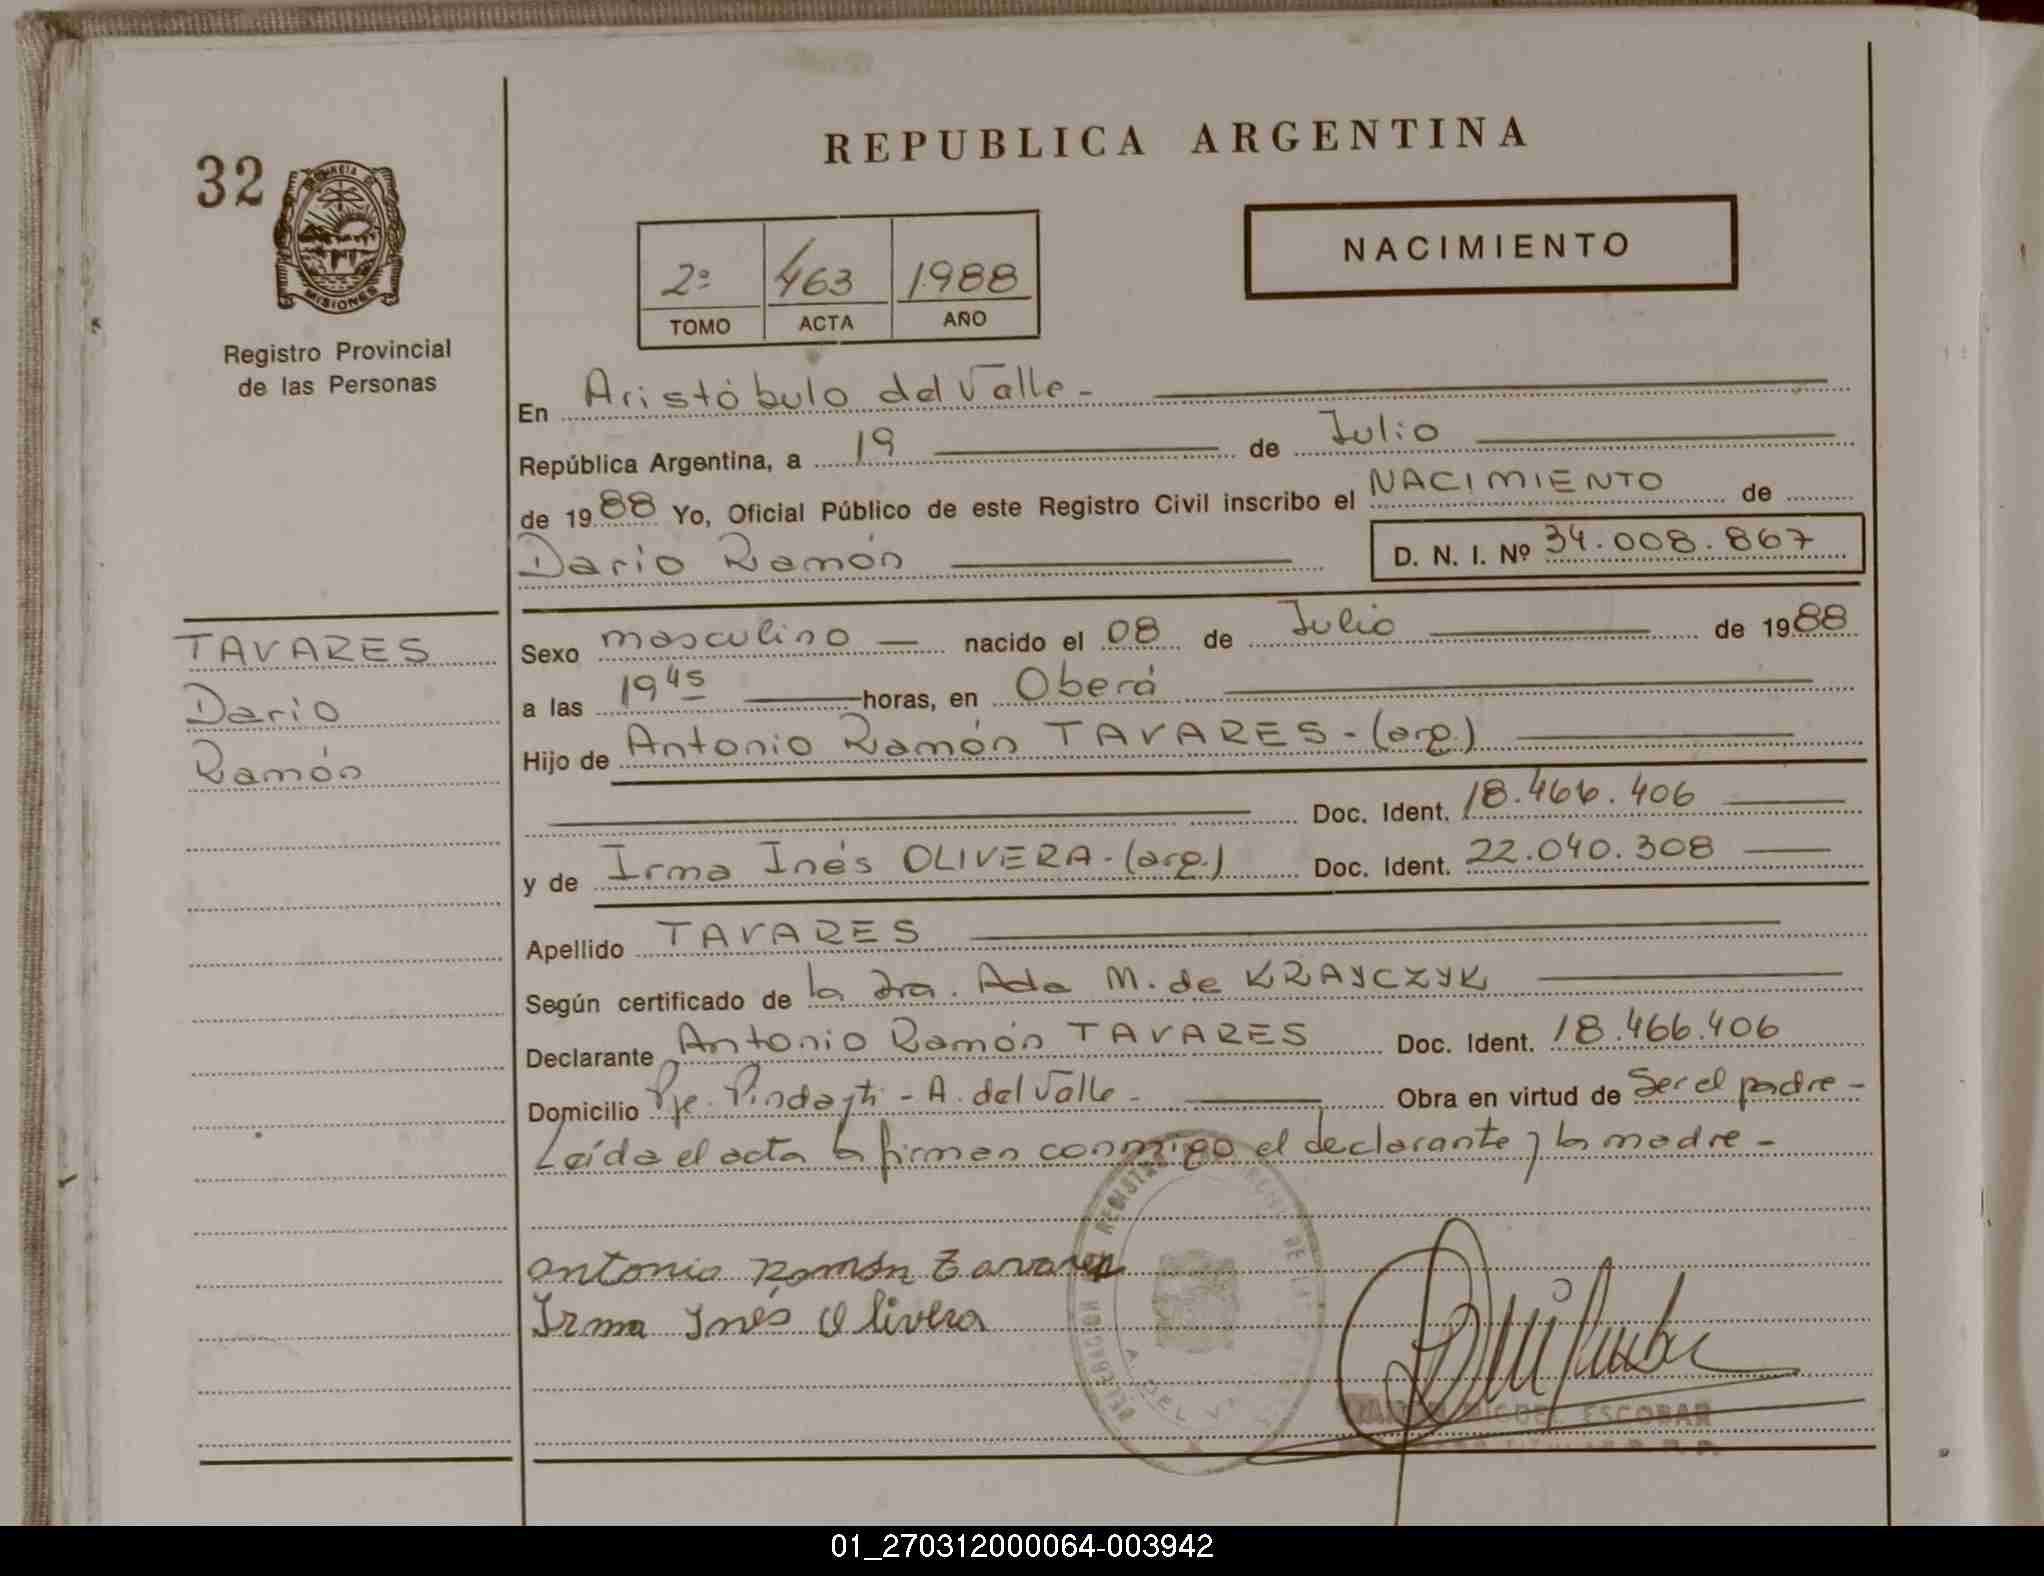 REPUBLICA ARGENTINA
32
MISIONES
Registro Provincial
de las Personas
2º 463 1988
TOMO ACTA AÑO
NACIMIENTO
En Aristóbulo del Valle -
República Argentina, a 19 de Julio
de 1988 Yo, Oficial Público de este Registro Civil inscribo el NACIMIENTO de
Dario Ramón D. N. I. Nº 34.008.867
TAVARES
Dario
Ramón
Sexo masculino nacido el 08 de Julio de 1988
a las 19 45 horas, en Oberá
Hijo de Antonio Ramón TAVARES - (arg.)
Doc. Ident. 18.466.406
y de Irma Inés OLIVERA - (arg.) Doc. Ident. 22.040.308
Apellido TAVARES
Según certificado de la Dra. Ada M. de KRAYCZYK
Declarante Antonio Ramón TAVARES Doc. Ident. 18.466.406
Domicilio Pje. - A. del Valle - Obra en virtud de Ser el padre -
Leída el acta la firman conmigo el declarante y la madre -
Antonio Ramón Tavares
Irma Inés Olivera
DELEGACION REGIST
A. DEL V
MIGUEL ESCOBAR
01_270312000064-003942